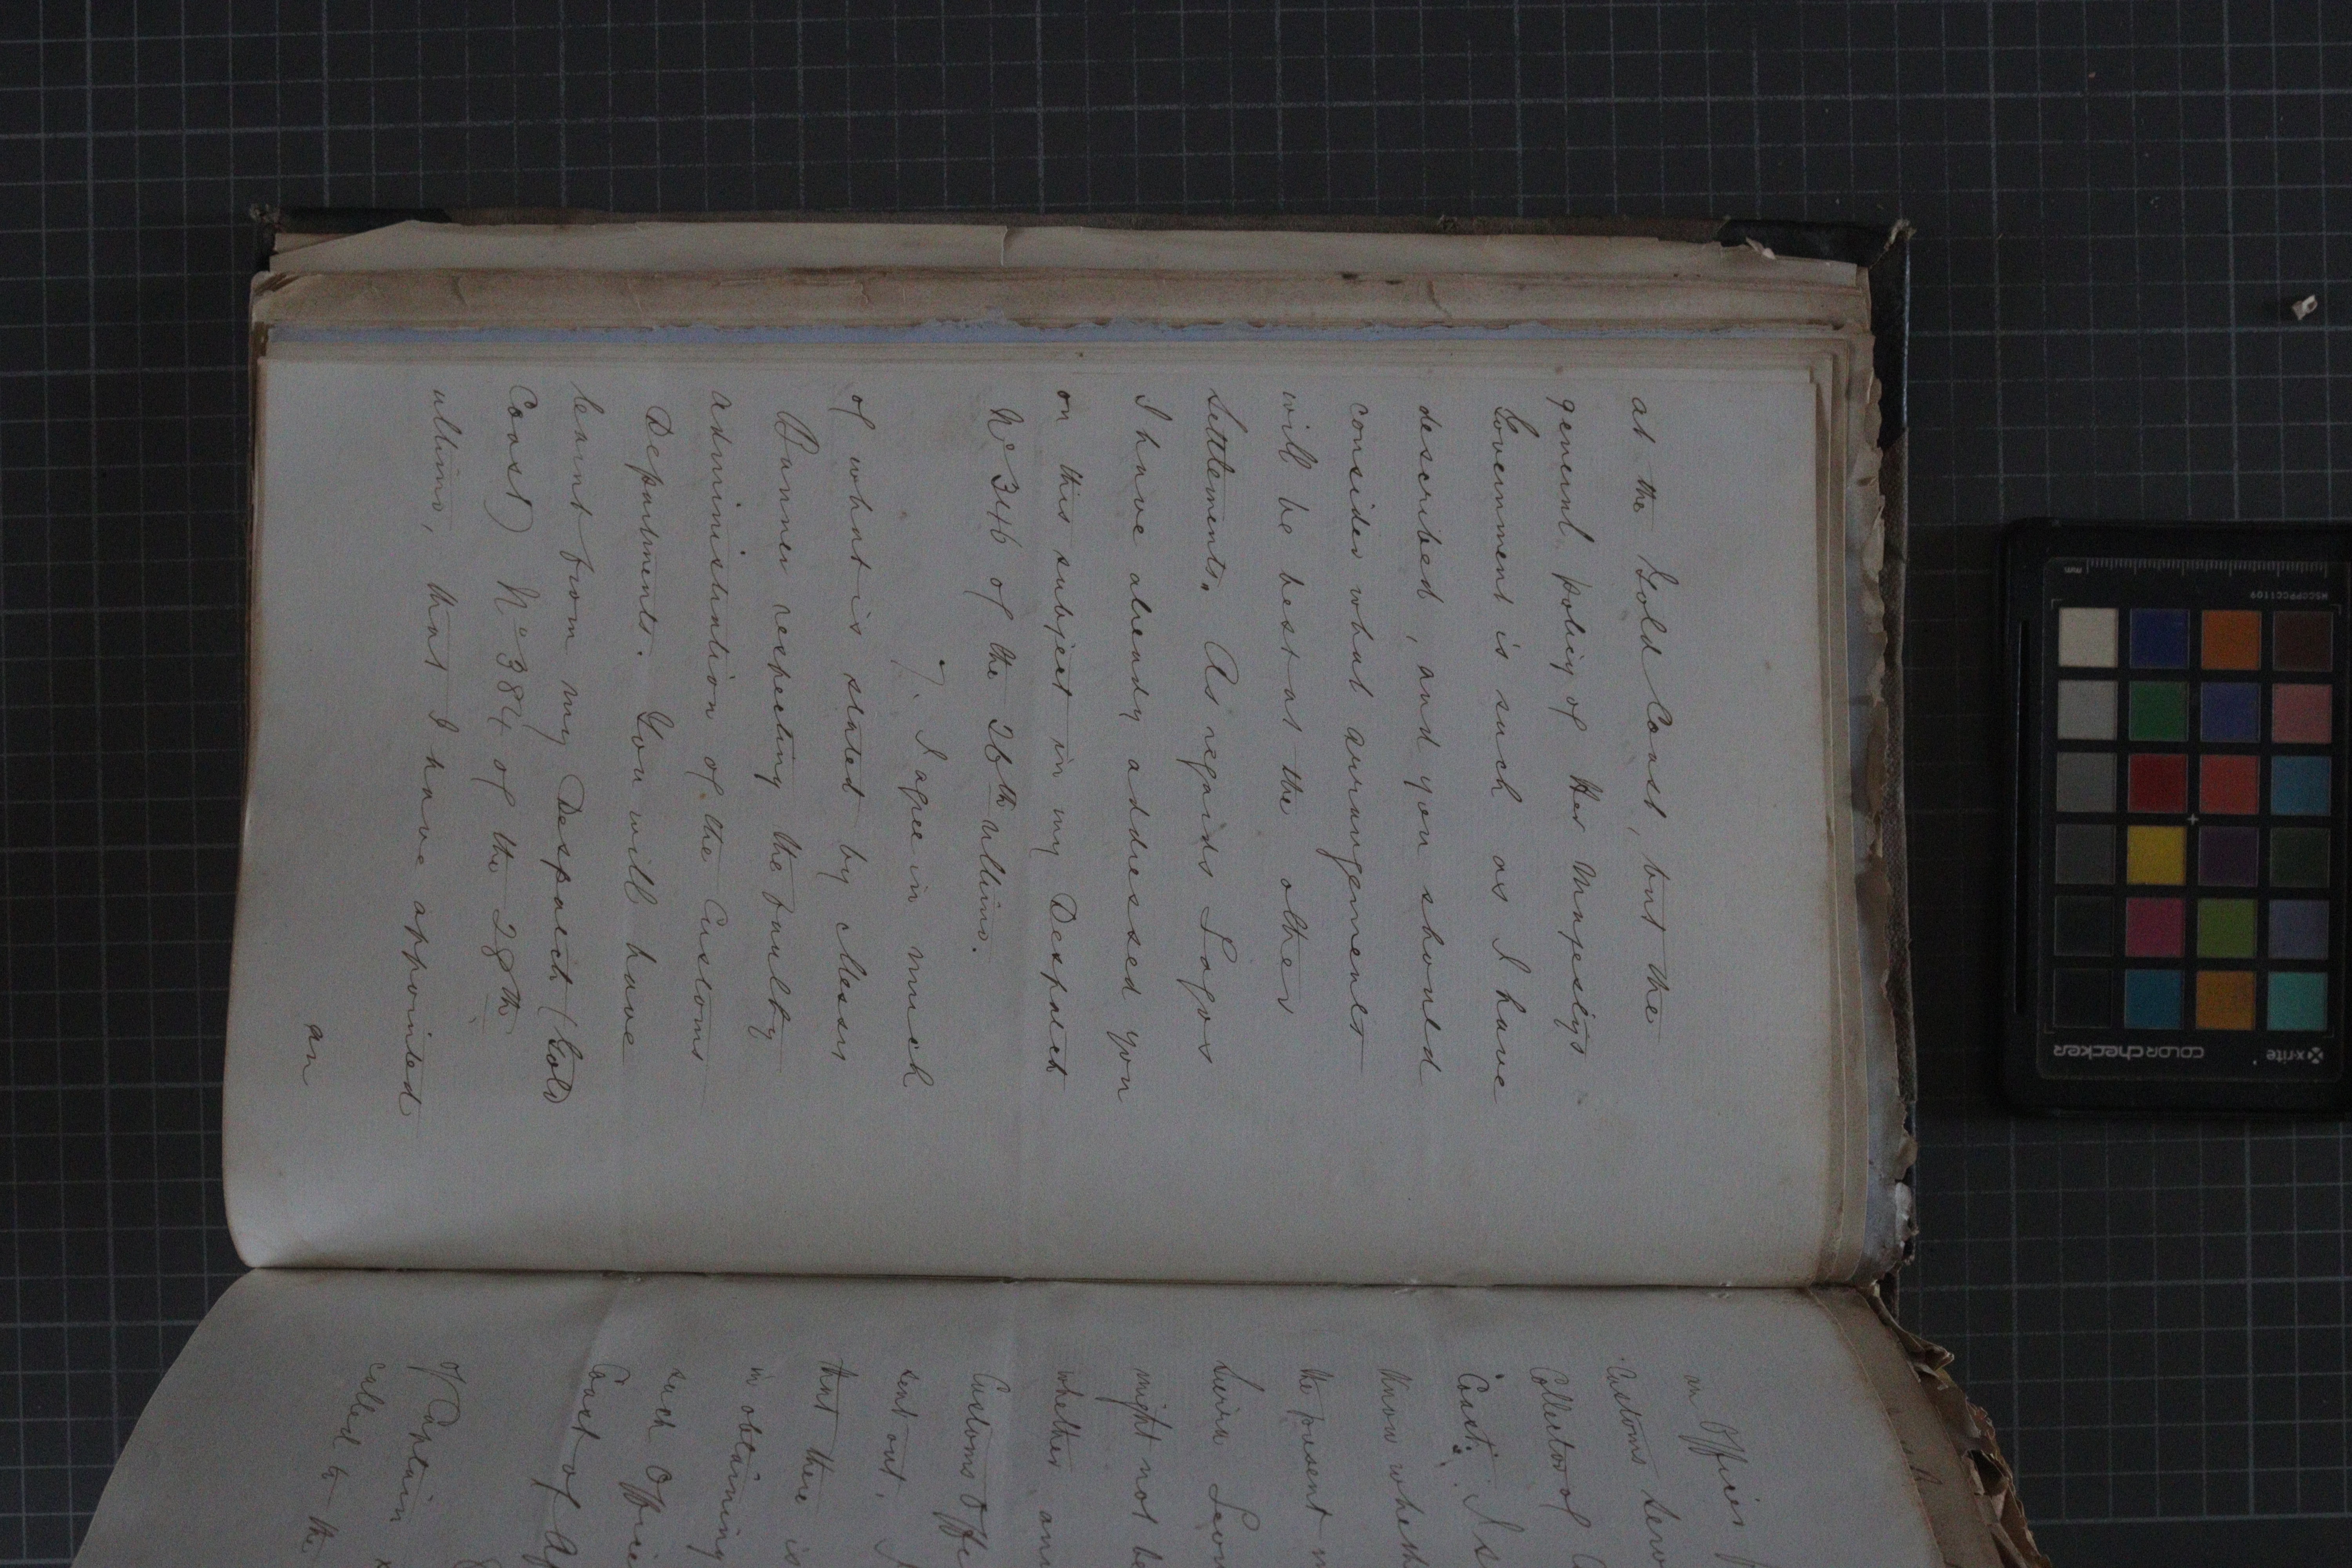 at the Gold Coast, but the
general policy of Her Majesty's
Government is such as I have
described, and you should
consider what arrangements
will be best at the other
Settlements. As regards Lagos
I have already addressed you
on this subject in my Despatch
No 346 of the 26th ultimo.
7. I agree in much
of what is stated by Messrs
respecting the faulty
administration of the Customs
Departments. You will have
learnt from my Despatch (Gold
Coast) No 384 of the 28th
ultimo, that I have appointed
an
an Officer
Customs
Collector of
Coast. I
know whether
the present
Sierra
might not be
whether
Customs
sent out.
that there is
in obtaining
such
Coast of
of Captain
called to the
x-rite
colorchecker
MSCCPPCC1109
mm